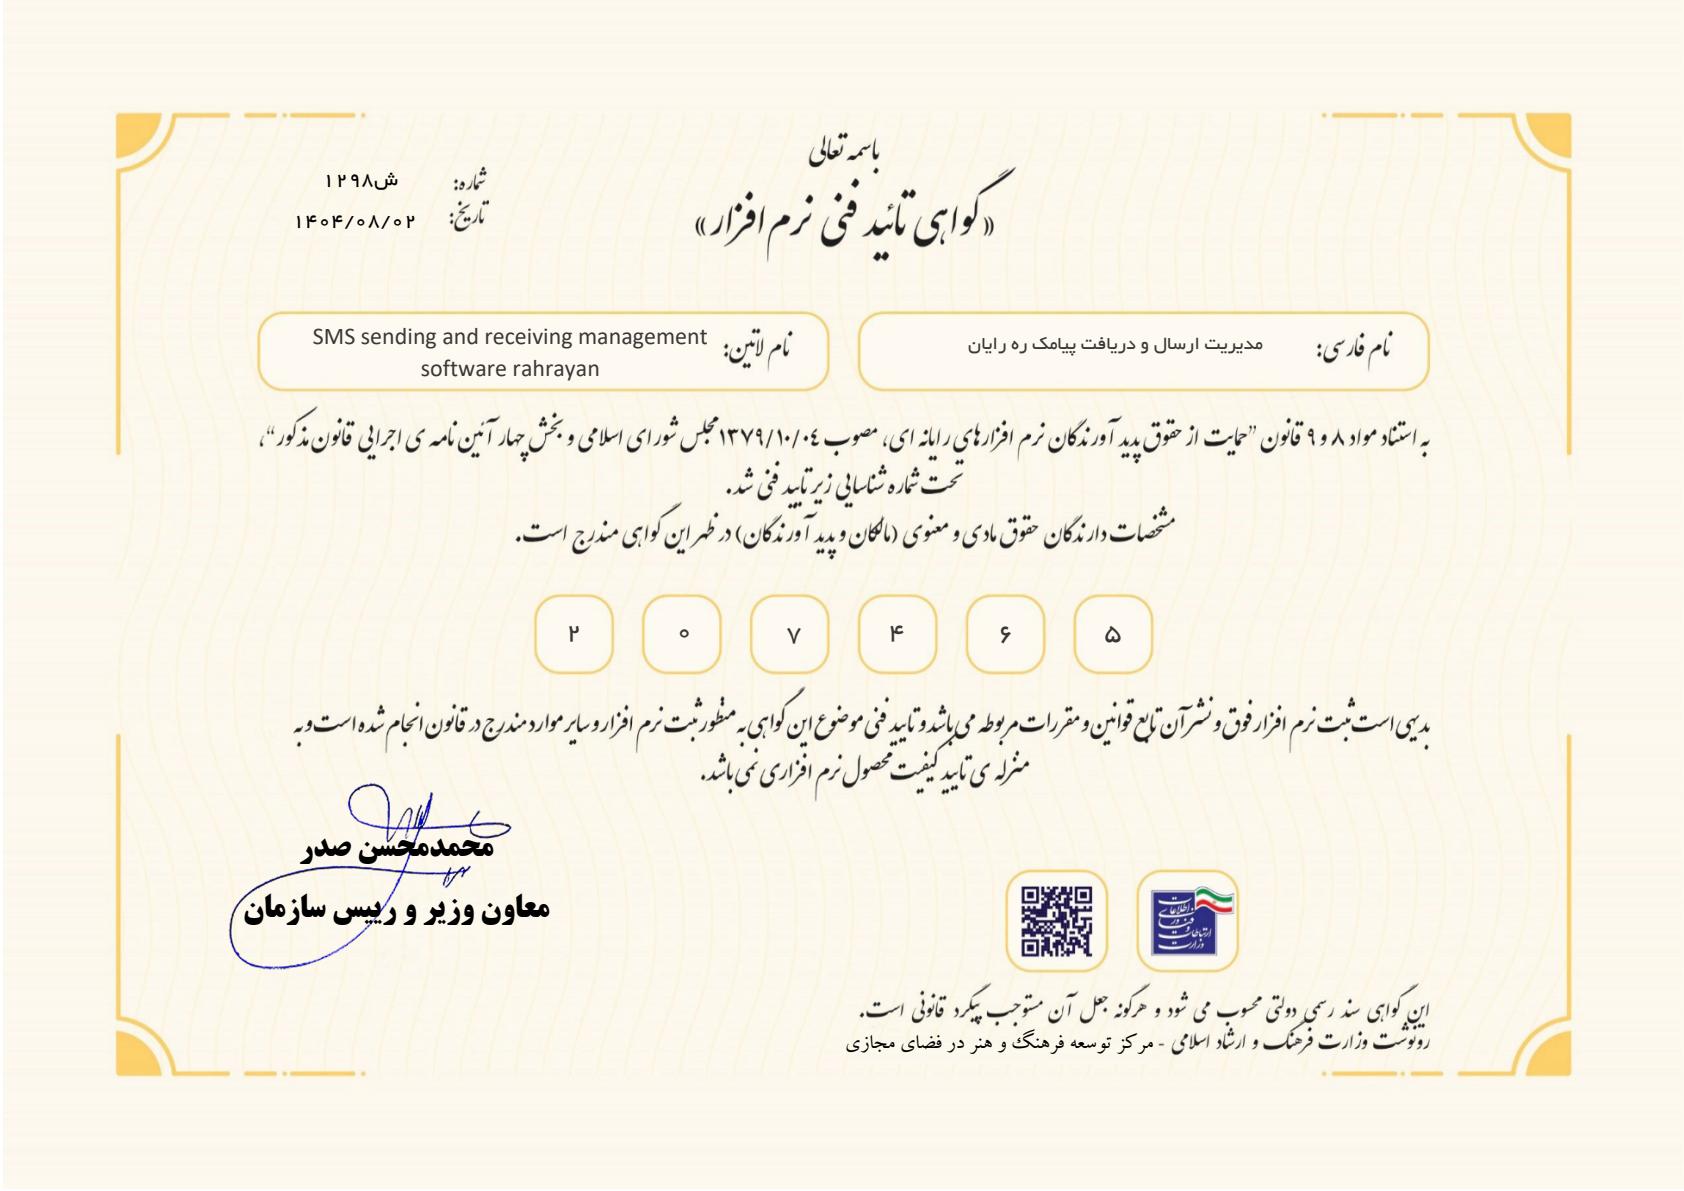 باسمه تعالی
«گواهی تائید فنی نرم افزار»
شماره: ش۱۲۹۸
تاریخ: ۱۴۰۴/۰۸/۰۲
نام فارسی: مدیریت ارسال و دریافت پیامک ره رایان
نام لاتین: SMS sending and receiving management
software rahrayan
به استناد مواد ۸ و ۹ قانون ”حمایت از حقوق پدید آورندگان نرم افزارهای رایانه ای، مصوب ۱۳۷۹/۱۰/۰٤ مجلس شورای اسلامی و بخش چهار آئین نامه ی اجرایی قانون مذکور“،
تحت شماره شناسایی زیر تایید فنی شد.
مشخصات دارندگان حقوق مادی و معنوی (مالکان و پدید آورندگان) در ظهر این گواهی مندرج است.
۲ ۰ ۷ ۴ ۶ ۵
بدیهی است ثبت نرم افزار فوق و نشر آن تابع قوانین و مقررات مربوطه می باشد و تایید فنی موضوع این گواهی به منظور ثبت نرم افزار و سایر موارد مندرج در قانون انجام شده است و به
منزله ی تایید کیفیت محصول نرم افزاری نمی باشد.
محمدمحسن صدر
معاون وزیر و رییس سازمان
وزارت
ارتباطات
و
فن آوری
اطلاعات
این گواهی سند رسمی دولتی محسوب می شود و هرگونه جعل آن مستوجب پیگرد قانونی است.
رونوشت وزارت فرهنگ و ارشاد اسلامی - مرکز توسعه فرهنگ و هنر در فضای مجازی